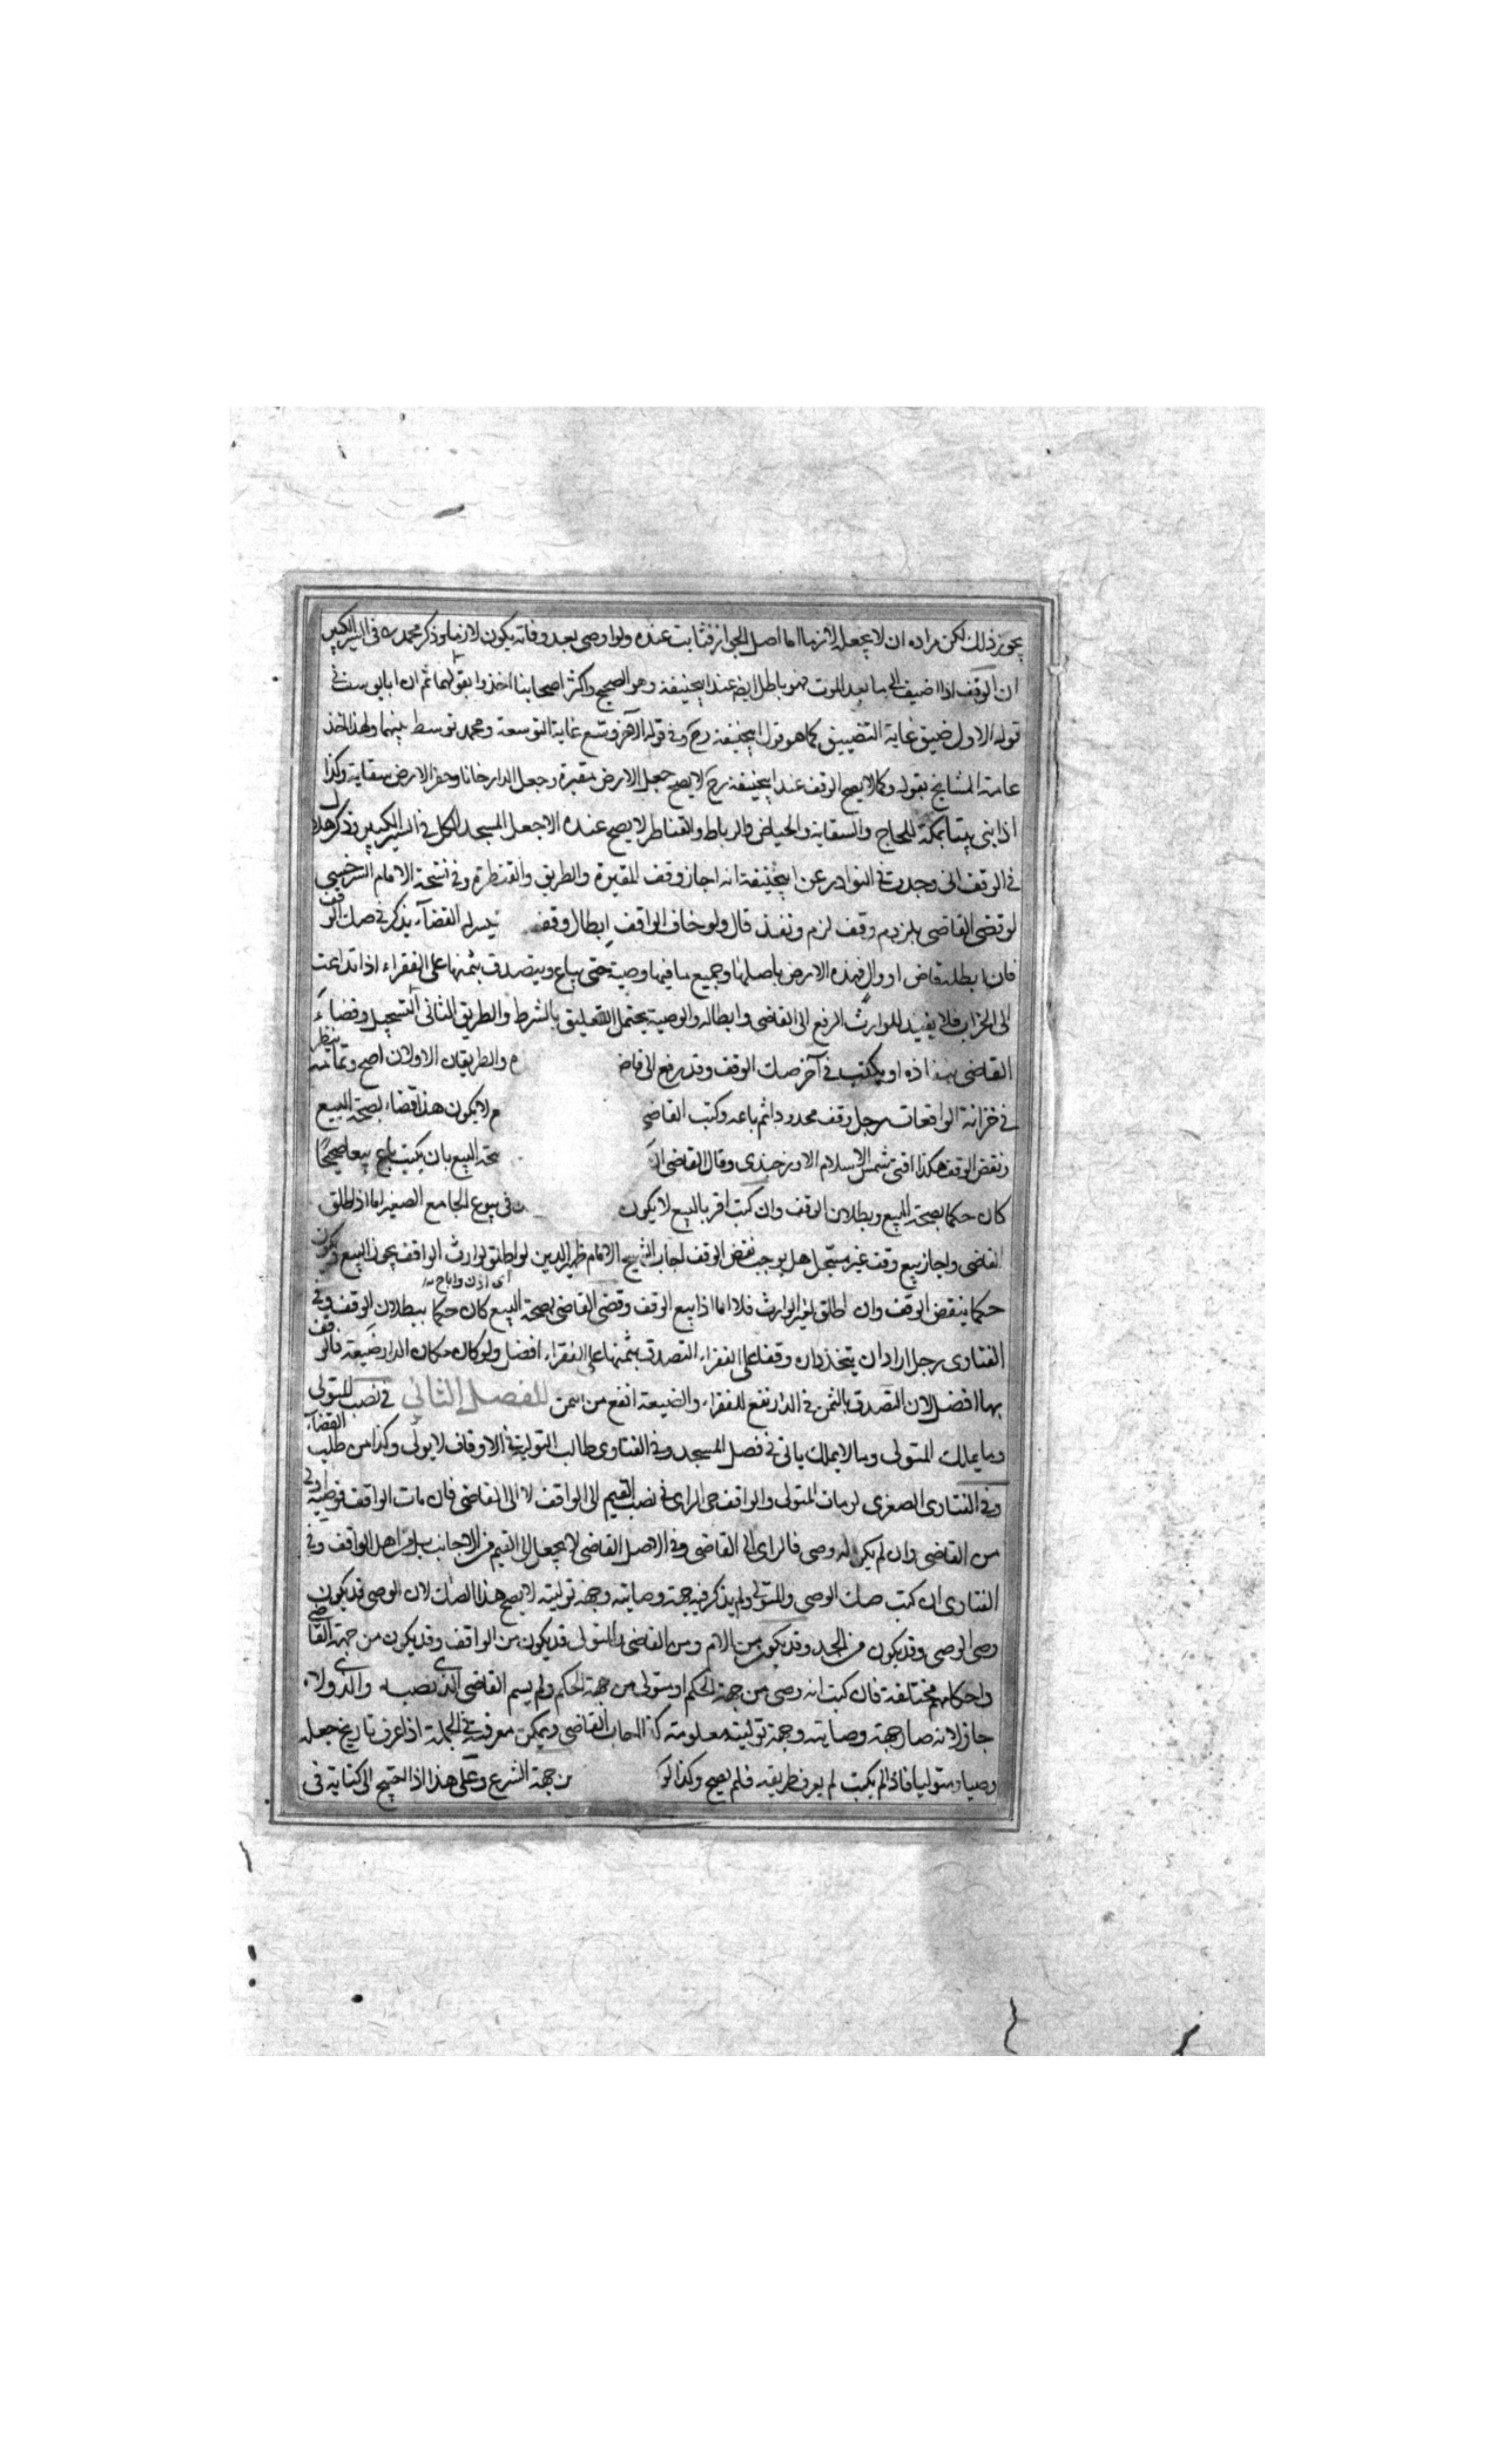 يجوز ذلك لكن مراده ان لا يجعله لازما اما اصل الجواز فثابت عنده ولو اوصى بعد وفاته يكون لازما وذكر محمد ره في السير الكبير
ان الوقف اذا اضيف الى ما بعد الموت فهو باطل ايضا عند ابيحنيفة وهو الصحيح واكثر اصحابنا اخذوا بقولهما ثم ان ابا يوسف في
قوله الاول ضيق غاية التضييق كما هو قول ابيحنيفة رح وفي قوله الآخر وسّع غاية التوسعة ومحمد توسط بينهما ولهذا اخذ
عامة المشايخ بقوله وكما لا يصح الوقف عند ابيحنيفة رح لا يصح جعل الارض مقبرة وجعل الدار خانا وحفر الارض سقاية وكذا
اذا بنى بيتا بمكة للحاج والسقاية والحياض والرباط والقناطر لا يصح عنده الا جعل المسجد الكل في السير الكبير وذكر هلال
في الوقف اني وجدت في النوادر عن ابيحنيفة انه اجاز وقف المقبرة والطريق والقنطرة وفي نسخة الامام السرخسي
لو قضى القاضي بلزوم وقف لزم ونفذ قال ولو خاف الواقف ابطال وقفه يتيسر له القضاء يذكر في صك الوقف
فان ابطله قاض او وال فهذه الارض باصلها وجميع ما فيها وصية حتى يباع ويتصدق بثمنها على الفقراء اذا تداعت
الى الخراب فلا يفيد للوارث الرفع الى القاضي وابطاله والوصية يحتمل التعليق بالشرط والطريق الثاني التسجيل وقضاء
القاضي بنفاذه او يكتب في آخر صك الوقف وقد رفع الى قاض م والطريقان الاولان اصح وتمامه ينظر
في خزانة الواقعات رجل وقف محدودا ثم باعه وكتب القاضي م لا يكون هذا قضاء بصحة البيع
ونقض الوقف هكذا افتى شمس الاسلام الاوزجندي وقال القاضي حة البيع بان يكتب باع بيعا صحيحًا
كان حكما بصحة البيع وبطلان الوقف وان كتب اقر بالبيع لا يكون في بيوع الجامع الصغير اما اذا اطلق
القاضي واجاز بيع وقف غير مسجل هل يوجب نقض الوقف اجاب الشيخ الامام ظهير الدين لو اطلق لوارث الواقف يجوز البيع ويكون
اى اذن واباح
حكما بنقض الوقف وان اطلق لغير الوارث فلا اما اذا بيع الوقف وقضى القاضي بصحة البيع كان حكما ببطلان الوقف وفي
الفتاوى رجل اراد ان يتخذ داره وقفا على الفقراء التصدق بثمنها على الفقراء افضل ولو كان مكان الدار ضيعة فالوقف
بها افضل لان التصدق بالثمن في الدار نفع للفقراء والضيعة انفع من الثمن الفصل الثاني في نصب المتولي
وما يملك المتولي وما لا يملك ياتي في فصل المسجد وفي الفتاوى طالب التولية في الاوقاف لا يولى وكذا من طلب القضاء
وفي الفتاوى الصغرى لو مات المتولي والواقف حي الراي في نصب القيم الى الواقف لا الى القاضي فان مات الواقف فوصيه اولى
من القاضي وان لم يكن له وصى فالراى الى القاضي وفي الاصل القاضي لا يجعل القيم من الاجانب اهل الواقف وفي
الفتاوى ان كتب صك الوصي والمتولي ولم يذكر فيه جهة وصايته وجهة توليته لا يصح هذا الصك لان الوصي قد يكون
وصي الوصي وقد يكون من الجد وقد يكون من الام ومن القاضي والمتولي قد يكون من الواقف وقد يكون من جهة القاضي
واحكامهم مختلفة فان كتب انه وصى من جهة الحكم او متولي من جهة الحكم ولم يسم القاضي الذي نصبه والذي ولاه
جاز لانه صار جهة وصايته وجهة توليته معلومة القاضي ويمكن معرفته في الجملة اذا عرف تاريخ جعله
وصيا ومتوليا فاذا لم يكتب لم يعرف طريقه فلم يصح وكذا لو من جهة الشرع وعلى هذا اذا احتيج الى كتابة في